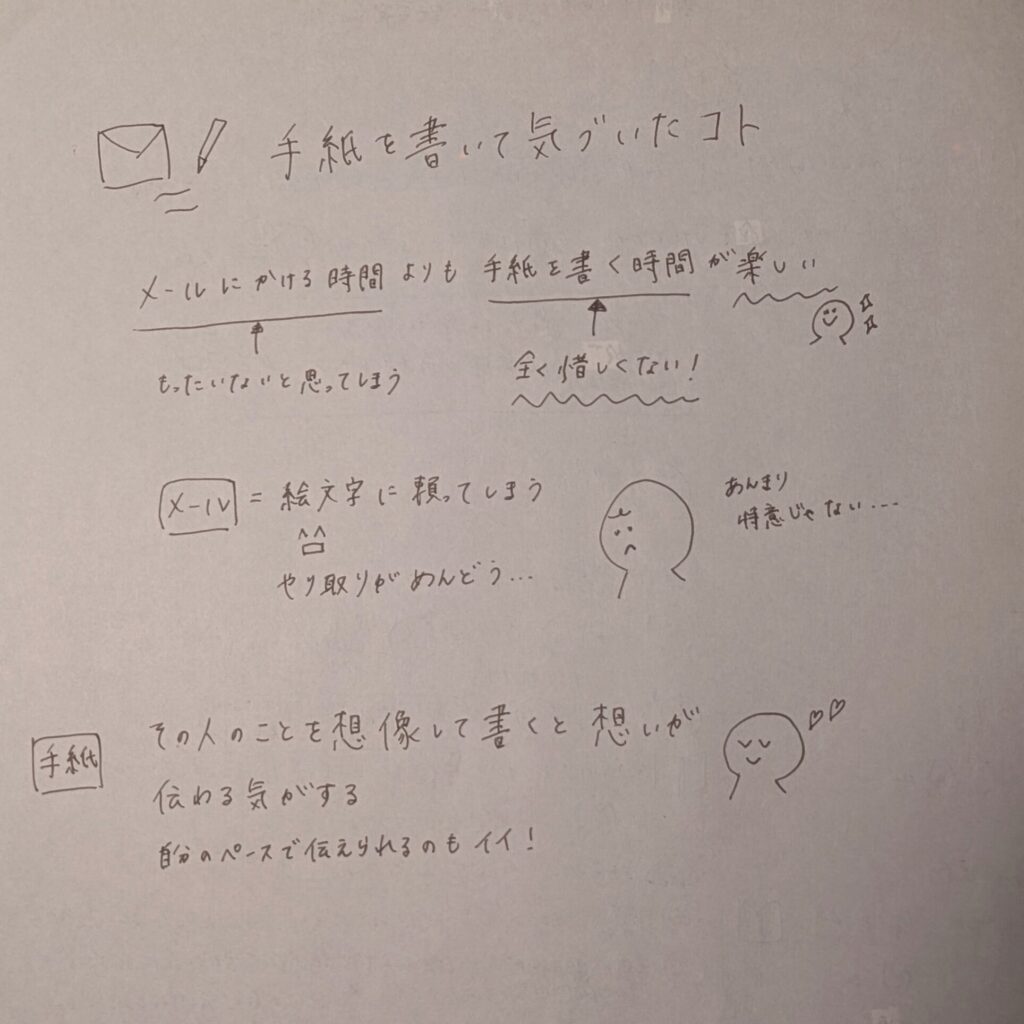 手紙を書いて気づいたコト
メールにかける時間よりも 手紙を書く時間が楽しい
もったいないと思ってしまう
全く惜しくない!
メール = 絵文字に頼ってしまう
やり取りがめんどう...
あんまり
得意じゃない...
手紙
その人のことを想像して書くと想いが
伝わる気がする
自分のペースで伝えられるのもイイ!